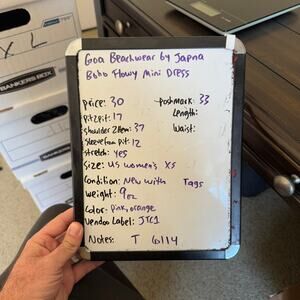 Goa Beachwear by Japna
Boho Flowy Mini Dress
price: 30
poshmark: 33
pit2pit: 17
Length:
shoulder2hem: 37
Waist:
sleeve from pit: 12
stretch: yes
size: US women's XS
Condition: New with Tags
weight: 9oz
Color: pink, orange
Vendoo Label: JTC1
Notes: T 6114
X L
BANKERS BOX
BANKERS BOX